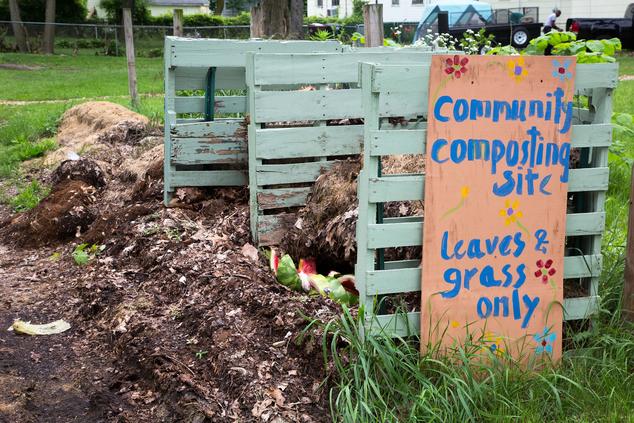 Community
composting
site
Leaves &
grass
only